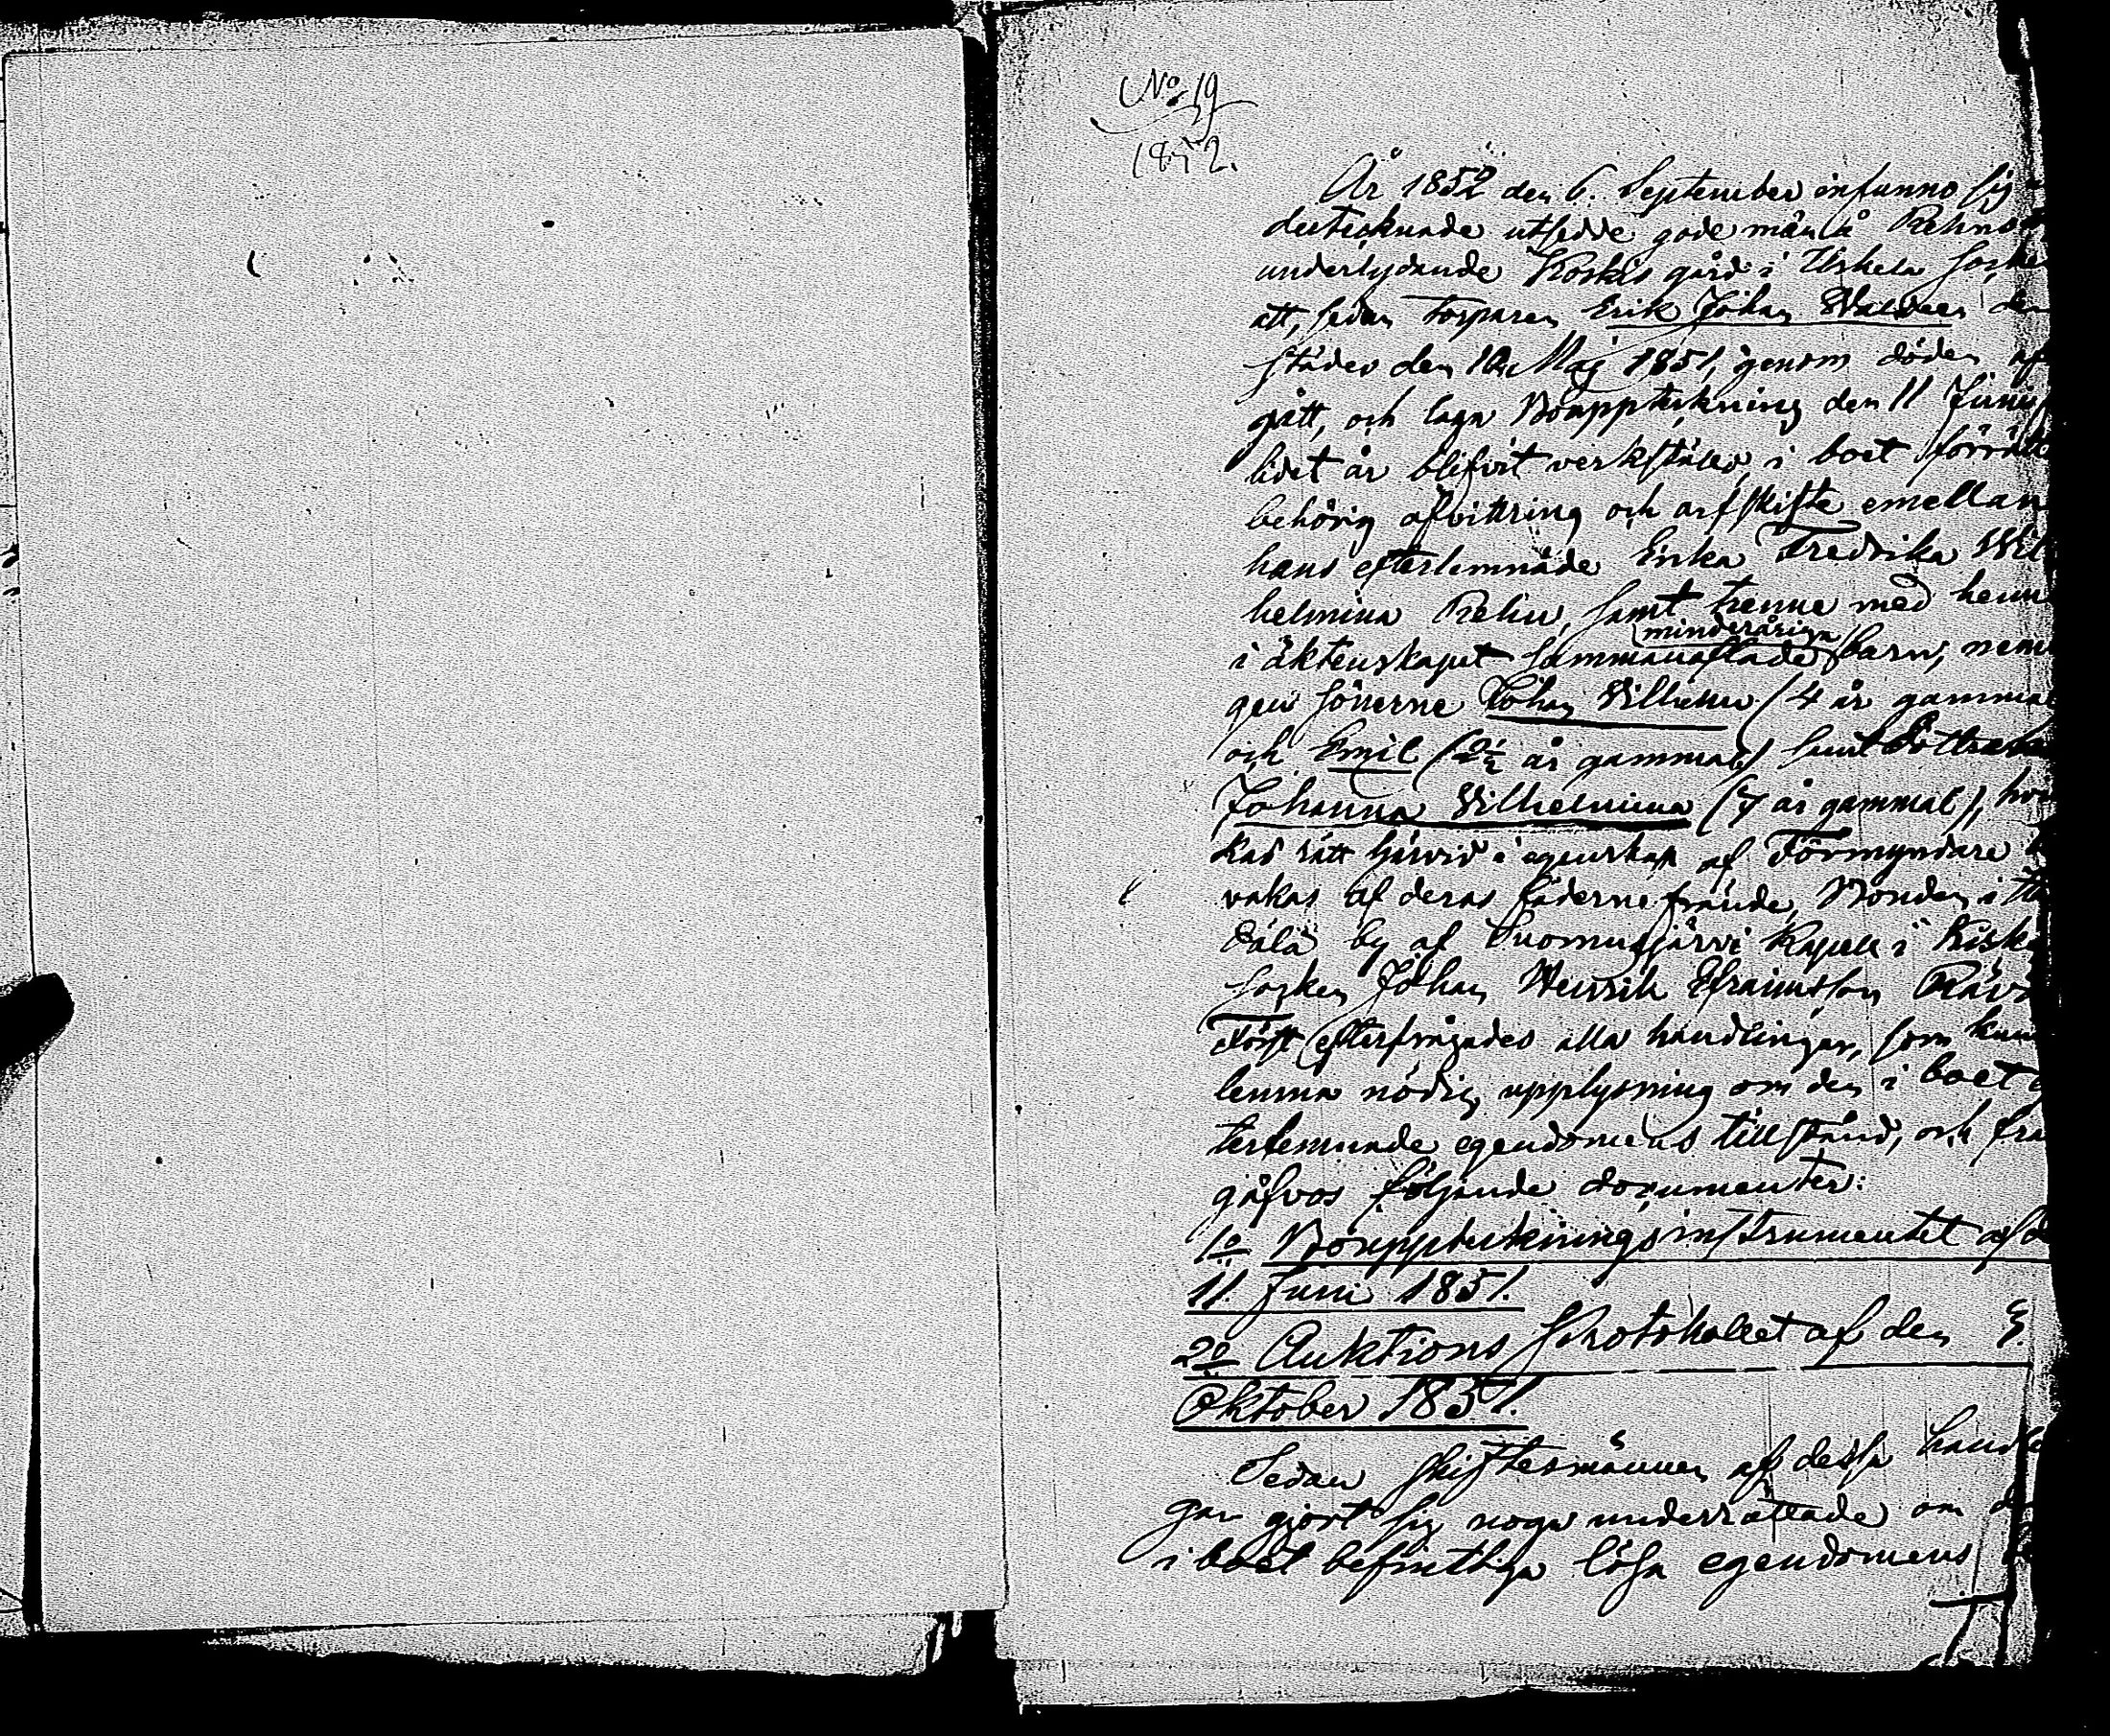 No 19
1852.
År 1852 den 6. September infunno sig
undertecknade utsedde gode män å
underlydande Koskis gård i Uskela
att, sedan Torparen Erik Johan
städes den Maj 1851, genom döden af
gått, och laga Bouppteckning den 11 Junii
lidet år blifvit verkstäld, i boet förrätta
behörig afvittring och arfskifte emellan
hans efterlemnade Erika Fredrika Wil
helmina samt trenne med henne
minderåriga
i äktenskapet sammanaflade barn, nemli
gen sönerne Johan Vilhelm (4 år gammal
och Emil (2½ år gammal) samt
Johanna Vilhelmina (7 år gammal), hvil
kas rätt härvid i egenskap af Förmyndare
vakas af deras fäderne frände, Bonden i
by af Suomusjärvi Kapell i Kisko
Socken Johan Henrik Efraimsson
Först efterfrågades alla handlingar, som kun
lemna nödig upplysning om den i boet
terlemnade egendomens tillstånd, och fram
gåfvos följande documenter:
1o Bouppteckningsinstrumentet af d
11 Juni 1851.
2o Auktions Protokollet af den
Oktober 1851.
Sedan skiftesmännen af dessa handlin
gar gjort sig noga underrättade om d
i boet befintliga lösa egendomens